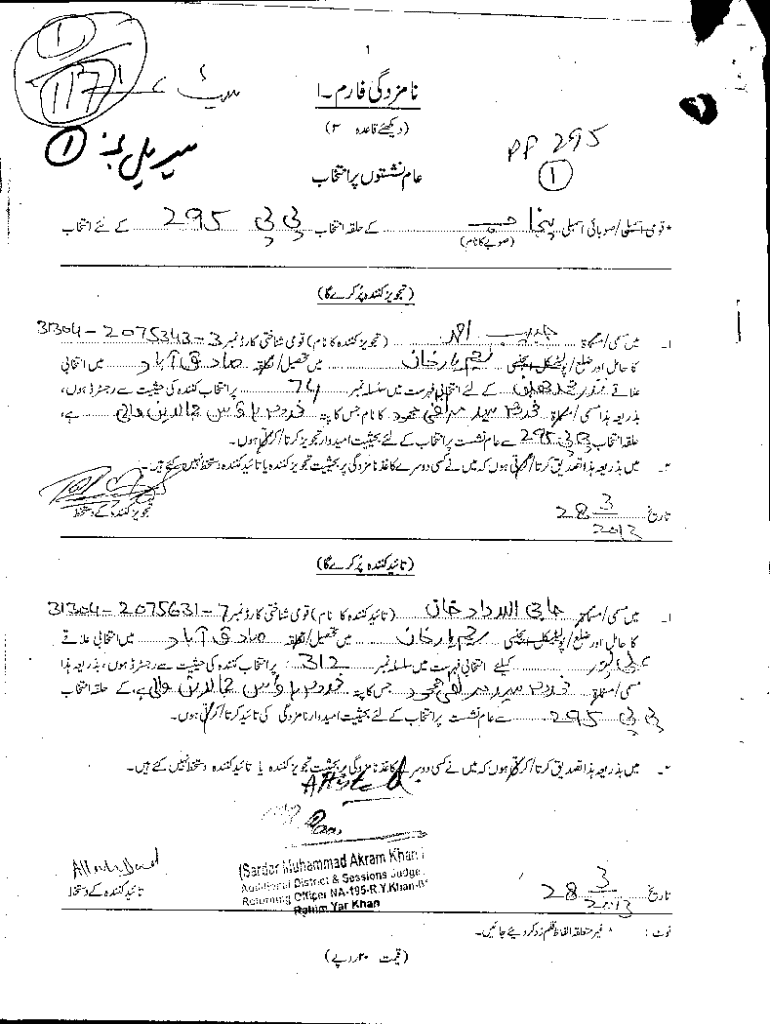 1
1
1171
نامزدگی فارم۔ا
(دیکھئے قاعدہ ۳)
سیریل نمبر 1
PP 295
1
عام نشستوں پر انتخاب
* قومی اسمبلی/صوبائی اسمبلی پنجاب کے حلقہ انتخاب پی پی 295 کے لئے انتخاب
(صوبے کا نام)
(تجویز کنندہ پُر کرے گا)
۱۔ میں مسمی/مسماۃ احمد (تجویز کنندہ کا نام) قومی شناختی کارڈ نمبر 31304-2075343-3
کا حامل اور ضلع/پولیٹیکل ایجنسی رحیم یار خان میں تحصیل/تعلقہ صادق آباد میں انتخابی
علاقے کے لئے انتخابی فہرست میں سلسلہ نمبر 74 پر انتخاب کنندہ کی حیثیت سے رجسٹرڈ ہوں،
بذریعہ ہذا مسمی/مسماۃ مخدوم سید مرتضیٰ محمود کا نام جس کا پتہ مخدوم ہاؤس جمالدین والی ہے،
حلقہ انتخاب پی پی 295 سے عام نشست پر انتخاب کے لئے بحیثیت امیدوار تجویز کرتا/کرتی ہوں۔
۲۔ میں بذریعہ ہذا تصدیق کرتا/کرتی ہوں کہ میں نے کسی دوسرے کاغذ نامزدگی پر بحیثیت تجویز کنندہ یا تائید کنندہ دستخط نہیں کئے ہیں۔
تاریخ 28 3 2013
تجویز کنندہ کے دستخط
(تائید کنندہ پُر کرے گا)
۱۔ میں مسمی/مسماۃ حاجی اللہ داد خان (تائید کنندہ کا نام) قومی شناختی کارڈ نمبر 31304-2075631-7
کا حامل اور ضلع/پولیٹیکل ایجنسی رحیم یار خان میں تحصیل/تعلقہ صادق آباد میں انتخابی علاقے
کیلئے انتخابی فہرست میں سلسلہ نمبر 312 پر انتخاب کنندہ کی حیثیت سے رجسٹرڈ ہوں، بذریعہ ہذا
مسمی/مسماۃ مخدوم سید مرتضیٰ محمود جس کا پتہ مخدوم ہاؤس جمالدین والی ہے، کے حلقہ انتخاب
پی پی 295 سے عام نشست پر انتخاب کے لئے بحیثیت امیدوار نامزدگی کی تائید کرتا/کرتی ہوں۔
۲۔ میں بذریعہ ہذا تصدیق کرتا/کرتی ہوں کہ میں نے کسی دوسرے کاغذ نامزدگی پر بحیثیت تجویز کنندہ یا تائید کنندہ دستخط نہیں کئے ہیں۔
Attested
(Sardar Muhammad Akram Khan)
Additional District & Sessions Judge
Returning Officer NA-195-R.Y.Khan-
Rahim Yar Khan
Allah Dad
تائید کنندہ کے دستخط
تاریخ 28 3 2013
نوٹ : * غیر متعلقہ الفاظ قلم زد کر دیئے جائیں۔
(قیمت ۲۰ روپے)